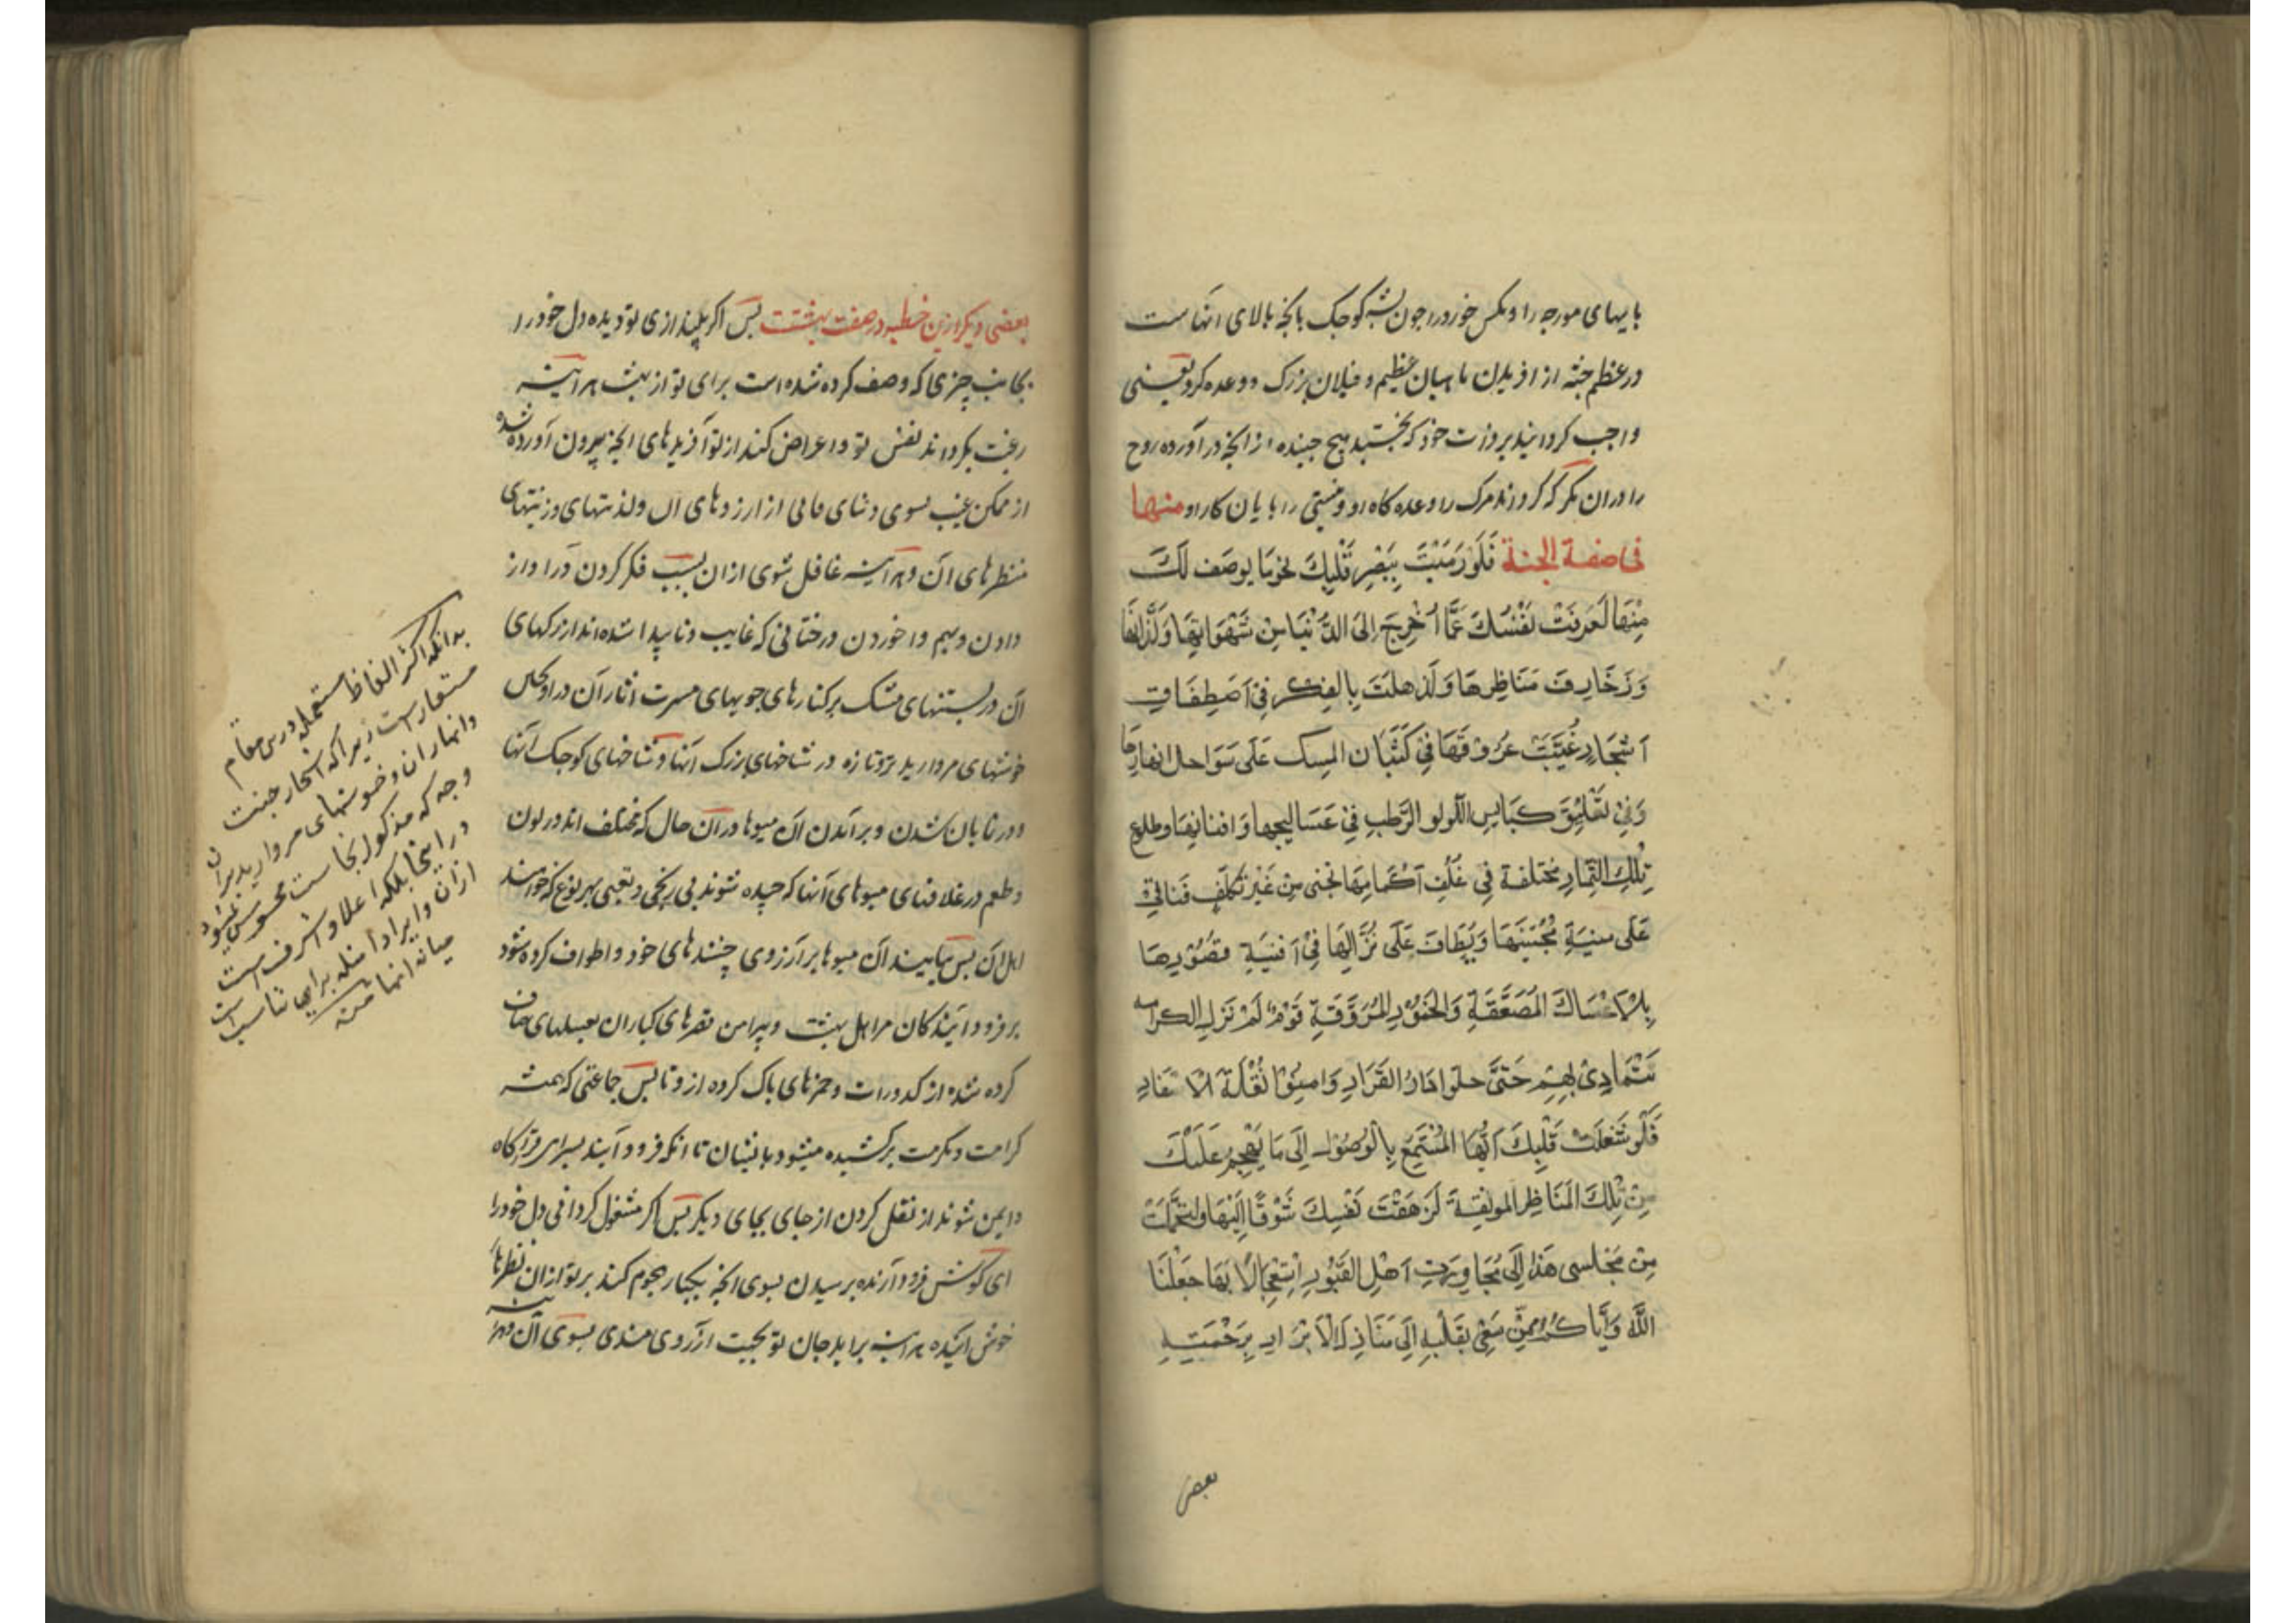 باپهای مورچه را و مکس خورد را چون پشه کوچک بانچه بالای انهاست
در عظم جثه از افریدن ماهیان عظیم و فیلان بزرک و وعده کرد یعنی
واجب کردانید بر ذات خود که نجنبد هیچ جنبنده از انچه در آورده روح
را دران مکر که کرداند مرک را وعده کاه او و نیستی را پایان کار او منها
فی صفة الجنة فَلَو رَمَیْتَ بِبَصَرِ قَلْبِكَ نحو مَا یوصَف لَكَ
مِنْهَا لَعَزَفَتْ نَفْسُكَ عَمَّا اُخْرِجَ اِلىَ الدُّنْیَا مِنْ شَهَوَاتِهَا وَلَذَّاتِهَا
وَزَخَارِفِ مَنَاظِرِهَا وَلَذَهِلَتْ بِالفِكْرِ فِیْ اصْطِفَاقِ
اَشْجَارٍ غُیِّبَتْ عُرُوْقُهَا فِیْ كُثْبَانِ المِسك عَلَى سَوَاحل انهارِهَا
وَفِیْ تَعْلِیْقِ كَبَایِسِ اللّولو الرَّطْبِ فِیْ عَسَالِیجِها وَافنانِهَا وطلوع
تِلْكَ الثِّمَارِ مُختَلفة فِی غُلُفِ اَكْمَامِهَا تجنى مِنْ غَیْرِ تَكلّفٍ فَتَاتِی
عَلَى منیَةِ مُجْتَنِیهَا وَیُطَافُ عَلَى نُزَّالِهَا فِیْ اَفنِیَةِ قصُوْرِهَا
بِالْاَعْسَال المُصَفَّقَةِ وَالخُمُوْرِ المُرَوَّقَةِ قَوْمٌ لَمْ تَزَلِ الكرامة
تَتَمَادىٰ بِهِمْ حَتّى حلوا دَارَ القَرَارِ وَامِنُوْا نُقْلَةَ الاَسْفَارِ
فَلَو شَغَلْتَ قَلْبَكَ اَیُّهَا المُسْتَمِعُ بِالْوُصُوْلِ اِلَى مَا یَهْجِمُ عَلَیْكَ
مِنْ تِلْكَ المَنَاظِرِ المونِقَةِ لَزَهَقَتْ نَفْسُكَ شَوْقًا اِلَیْهَا وَلتحَمَّلْتَ
مِن مَجْلسی هَذَا اِلَى مُجَاوَرَةِ اَهْلِ القُبُوْرِ اِسْتِعْجَالًا بِهَا جَعَلَنَا
اللّٰهُ وَاِیَّاكُمْ مِمَّنْ سَعٰى بِقَلْبِهِ اِلَى مَنَازِلِ الْاَبْرَارِ بِرَحْمَتِهِ
بعضی
بعضی دیکر ازین خطبه در صفت بهشتست پس اکر بیندازی تو دیده دل خود را
بجانب چیزی که وصف کرده شده است برای تو از بهشت هر آینه
رغبت بکرداند نفس تو و اعراض کند از نو آفریدهای انچه بیرون آورده شده
از ممکن غیب بسوی دنیای فانی از ارزوهای ان ولذتهای وزینتهای
منظرهای آن و هر آینه غافل شوی ازان بسبب فکر کردن در اواز
دادن و بهم واخوردن درختانی که غایب و ناپیدا شده اند از رکهای
آن در پشتهای مشک بر کنارهای جویهای مسرت اثار آن و در اونکاس
خوشهای مروارید تر و تازه در شاخهای بزرک آنها و شاخهای کوچک آنها
و در تابان شدن و برآمدن ان میوها در آن حال که مختلف اند در لون
و طعم در غلافهای میوهای آنها که چیده شوند بی رنجی و تعبی بهر نوع که خواهند
اهل آن پس می‌آیند آن میوها بر آرزوی چینندهای خود و اطواف کرده شود
بر فرود آیندکان مر اهل بهشت و پیرامن قصرهای کبار ان بعسلهای صاف
کرده شده از کدورات و خمرهای پاک کرده از و ناپس جماعتی که همیشه
کرامت و مکرمت برکشیده میشود باایشان تا انکه فرود آیند بسرای قرارکاه
و ایمن شوند از نقل کردن از جای بجای دیکر پس اکر مشغول کردانی دل خود را
ای کوش فرود آرنده برسیدن بسوی انچه بیکبار هجوم کند بر تو از ان نظرها
خوش آینده هر آینه براید جان تو بجهت ارزومندی بسوی آن و هر آینه
بدانکه اکثر الفاظ مستعمله درین مقام
مستعار است زیرا که اشجار جنت
وانهار ان و خوشهای مروارید بران
وجه که مذکور اینجاست محسوس نمیشود
در اینجا بلکه اعلا و اشرف است
ازان و ایراد امثله برای تناسب است
میانه انها منه